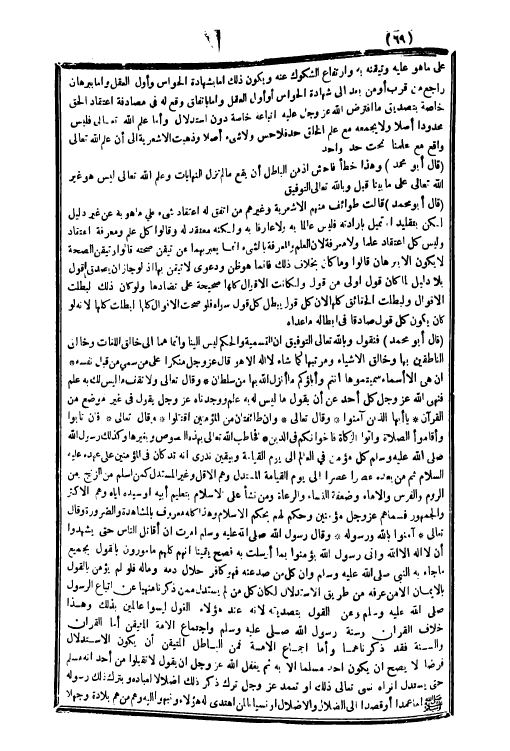 (٦٩)
على ماهو عليه وتيقنه به وارتفاع الشكوك عنه ويكون ذلك اما بشهادة الحواس وأول العقل واما ببرهان
راجع من قرب أو من بعد الى شهادة الحواس أو أول العقل واما باتفاق وقع له في مصادفة اعتقاد الحق
خاصة بتصديق ما افترض الله عز وجل عليه اتباعه خاصة دون استدلال وأما علم الله تعالى فليس
محدودا أصلا ولا يجمعه مع علم الخلق حد فلا حس ولا شيء أصلا وذهبت الاشعرية الى أن علم الله تعالى
واقع مع علمنا تحت حد واحد
(قال أبو محمد) وهذا خطأ فاحش اذ من الباطل أن يقع مالم تزل النهايات وعلم الله تعالى ليس هو غير
الله تعالى على ما بينا قبل وبالله تعالى التوفيق
(قال أبو محمد) قالت طوائف منهم الاشعرية وغيرهم من اتفق له اعتقاد شيء على ماهو به عن غير دليل
لكن بتقليد أو تميل بارادته فليس عالما به ولا عارفا به ولكنه معتقد له وقالوا كل علم ومعرفة اعتقاد
وليس كل اعتقاد علما ولا معرفة لان العلم والمعرفة بالشيء انما يعبر بهما عن تيقن صحته قالوا وتيقن الصحة
لا يكون الا ببرهان قالوا وما كان بخلاف ذلك فانما هو ظن ودعوى لا تيقن بها اذ لو جاز أن يصدق قول
بلا دليل لما كان قول أولى من قول ولكانت الاقوال كلها صحيحة على تضادها ولو كان ذلك لبطلت
الاقوال ولبطلت الحقائق كلها لان كل قول يبطل كل قول سواه فلو صحت الاقوال كلها لبطلت كلها لانه لو
كان يكون كل قول صادقا في ابطاله ماعداه
(قال أبو محمد) فنقول وبالله تعالى التوفيق ان التسمية والحكم ليس الينا وانما هما الى خالق اللغات وخالق
الناطقين بها وخالق الاشياء ومرتبها كما شاء لا اله الا هو قال عز وجل منكرا على من سمى من قبل نفسه *
ان هي الا أسماء سميتموها أنتم وآباؤكم ما أنزل الله بها من سلطان * وقال تعالى ولا تقف ما ليس لك به علم
فنهى الله عز وجل كل أحد عن أن يقول ما ليس له به علم ووجدناه عز وجل يقول في غير موضع من
القرآن * يا أيها الذين آمنوا * وقال تعالى * وان طائفتان من المؤمنين اقتتلوا * وقال تعالى * فان تابوا
وأقاموا الصلاة وآتوا الزكاة فاخوانكم في الدين * فخاطب الله تعالى بهذه النصوص وبغيرها وكذلك رسول الله
صلى الله عليه وسلم كل مؤمن في العالم الى يوم القيامة وبيقين ندري انه قد كان في المؤمنين على عهده عليه
السلام ثم من بعده عصرا عصرا الى يوم القيامة المستدل وهم الاقل وغير المستدل كمن أسلم من الزنج ومن
الروم والفرس والاماء وضعفة النساء والرعاة ومن نشأ على الاسلام بتعليم أبيه أو سيده اياه وهم الاكثر
والجمهور فسماهم عز وجل مؤمنين وحكم لهم بحكم الاسلام وهذا كله معروف بالمشاهدة والضرورة وقال
تعالى * آمنوا بالله ورسوله * وقال رسول الله صلى الله عليه وسلم أمرت أن أقاتل الناس حتى يشهدوا
أن لا اله الا الله وأني رسول الله ويؤمنوا بما أرسلت به فصح يقينا انهم كلهم مأمورون بالقول بجميع
ماجاء به النبي صلى الله عليه وسلم وان كل من صد عنه فهو كافر حلال دمه وماله فلو لم يؤمن بالقول
بالايمان الا من عرفه من طريق الاستدلال لكان كل من لم يستدل ممن ذكرنا منهيا عن اتباع الرسول
صلى الله عليه وسلم وعن القول بتصديقه لانه عند هؤلاء القول ليسوا عالمين بذلك وهذا
خلاف القرآن وسنة رسول الله صلى الله عليه وسلم واجماع الامة المتيقن أما القرآن
والسنة فقد ذكرناهما وأما اجماع الامة فمن الباطل المتيقن أن يكون الاستدلال
فرضا لا يصح أن يكون أحد مسلما الا به ثم يغفل الله عز وجل أن يقول لا تقبلوا من أحد انه مسلم
حتى يستدل أتراه نسى تعالى ذلك أو تعمد عز وجل ترك ذكر ذلك اضلالا لعباده ويترك ذلك رسوله
صلى الله عليه وسلم اما عمدا أو قصدا الى الضلال والاضلال أو نسيانا لما اهتدى له هؤلاء ونبهوا اليه وهم من هم بلادة وجهلا